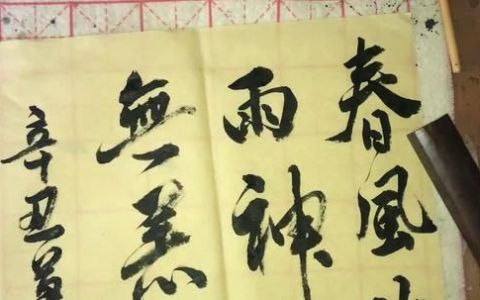 春風
雨神
無恙
辛丑